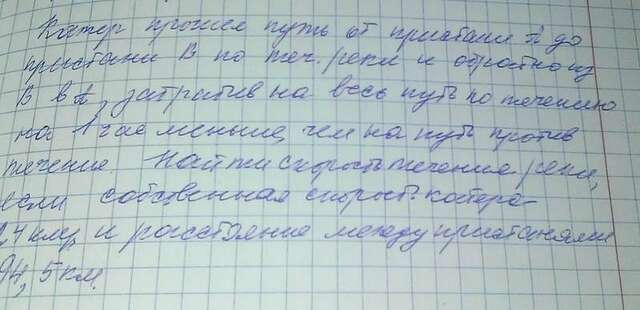 Катер прошел путь от пристани А до
пристани В по теч. реки и обратно из
В в А, затратив на весь путь по течению
на 1 час меньше, чем на путь против
течение. Найти скорость течение реки,
если собственная скорость катера
24 км/ч, и расстояние между пристанями
94,5 км.